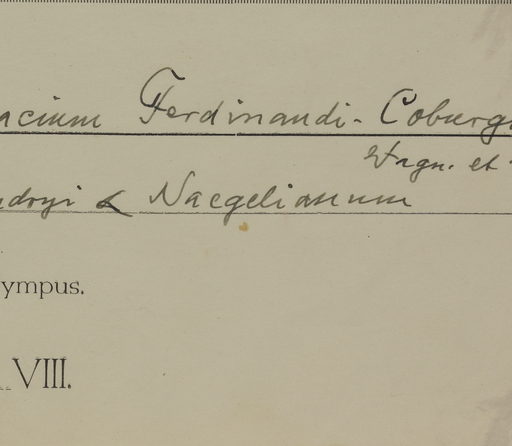 acium Ferdinandi-Coburg
Stagn. et
ndryi < Naegelianum
ympus.
VIII.